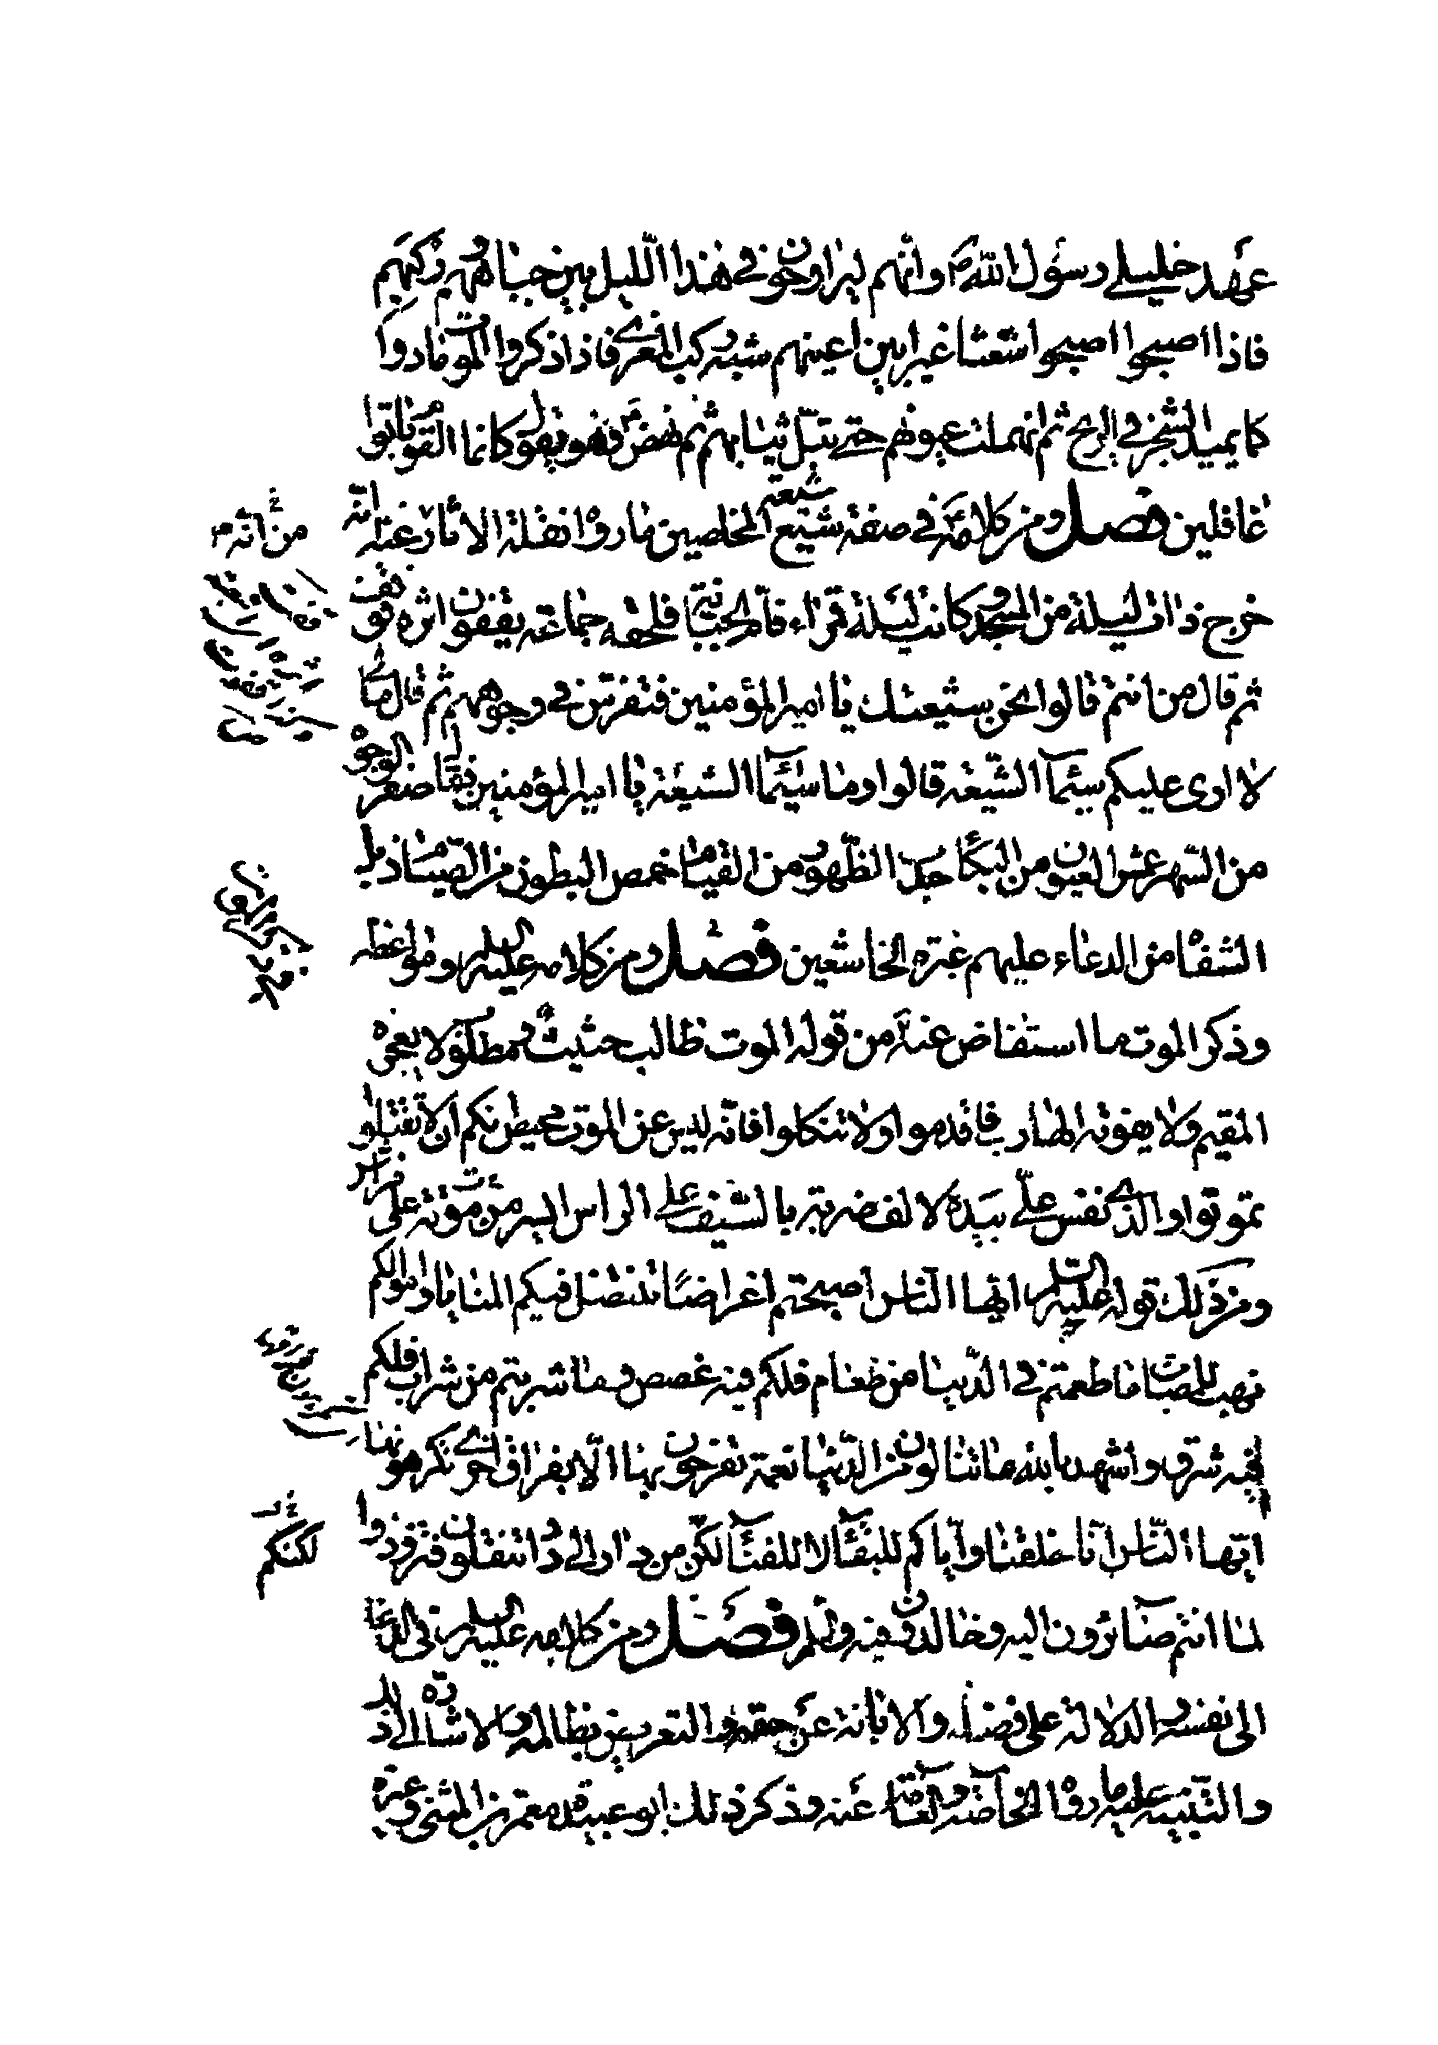 عهد خليلي رسول الله ص وانهم ليراوحون في هذا الليل بين جباههم وركبهم
فاذا اصبحوا اصبحوا شعثا غبرا بين اعينهم شبه ركب المعزى فاذا ذكروا الموت مادوا
كما يميد الشجر في الريح ثم انهملت عيونهم حتى تبل ثيابهم ثم نهض وهو يقول كانما القوم باتوا
غافلين فصل ومن كلامه في صفة شيعته المخلصين ما رواه نقلة الاثار عنه انه
خرج ذات ليلة من المسجد وكانت ليلة قمراء فام الجبانة فلحقه جماعة يقفون اثره فوقف
ثم قال من انتم قالوا نحن شيعتك يا امير المؤمنين فتفرس في وجوههم ثم قال ما لي
لا ارى عليكم سيماء الشيعة قالوا وما سيماء الشيعة يا امير المؤمنين فقال صفر الوجوه
من السهر عمش العيون من البكاء حدب الظهور من القيام خمص البطون من الصيام ذبل
الشفاه من الدعاء عليهم غبرة الخاشعين فصل ومن كلامه عليه السلم ومواعظه
وذكر الموت ما استفاض عنه من قوله الموت طالب حثيث ومطلوب لا يعجزه
المقيم ولا يفوته الهارب فاقدموا ولا تنكلوا فانه ليس عن الموت محيص انكم ان لا تقتلوا
تموتوا والذي نفس علي بيده لالف ضربة بالسيف على الراس ايسر من موتة على فراش
ومن ذلك قوله عليه السلم ايها الناس اصبحتم اغراضا تنتضل فيكم المنايا واموالكم
نهب للمصائب ما طعمتم في الدنيا من طعام فلكم فيه غصص وما شربتم من شراب فلكم
فيه شرق واشهد بالله ما تنالون من الدنيا نعمة تفرحون بها الا بفراق اخرى تكرهونها
ايها الناس انا خلقنا واياكم للبقاء لا للفناء لكن من دار الى دار تنقلون فتزودوا
لما انتم صائرون اليه وخالدون فيه والسلم فصل ومن كلامه عليه السلم في الدعاء
الى نفسه والدلالة على فضله والابانة عن حقه والتعريض بظالمه والاشارة الى ذلك
والتنبيه عليه ما رواه الخاصة والعامة عنه وذكر ذلك ابو عبيدة معمر بن المثنى وغيره
من انه
لكنكم